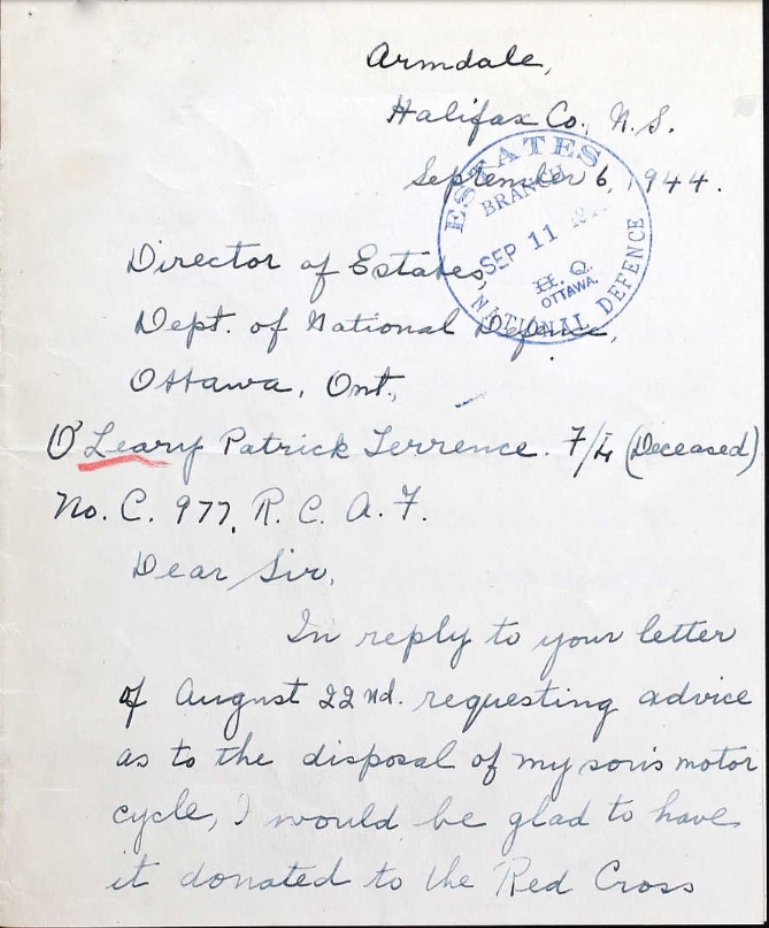 Armdale,
Halifax Co., N.S.
September 6, 1944.
ESTATES
BRANCH
SEP 11
H.Q.
OTTAWA.
NATIONAL DEFENCE
Director of Estates,
Dept. of National Defence,
Ottawa, Ont.,
O'Leary Patrick Terrence. F/L (Deceased)
No. C. 977, R. C. A. F.
Dear Sir,
In reply to your letter
of August 22nd. requesting advice
as to the disposal of my son's motor
cycle, I would be glad to have
it donated to the Red Cross